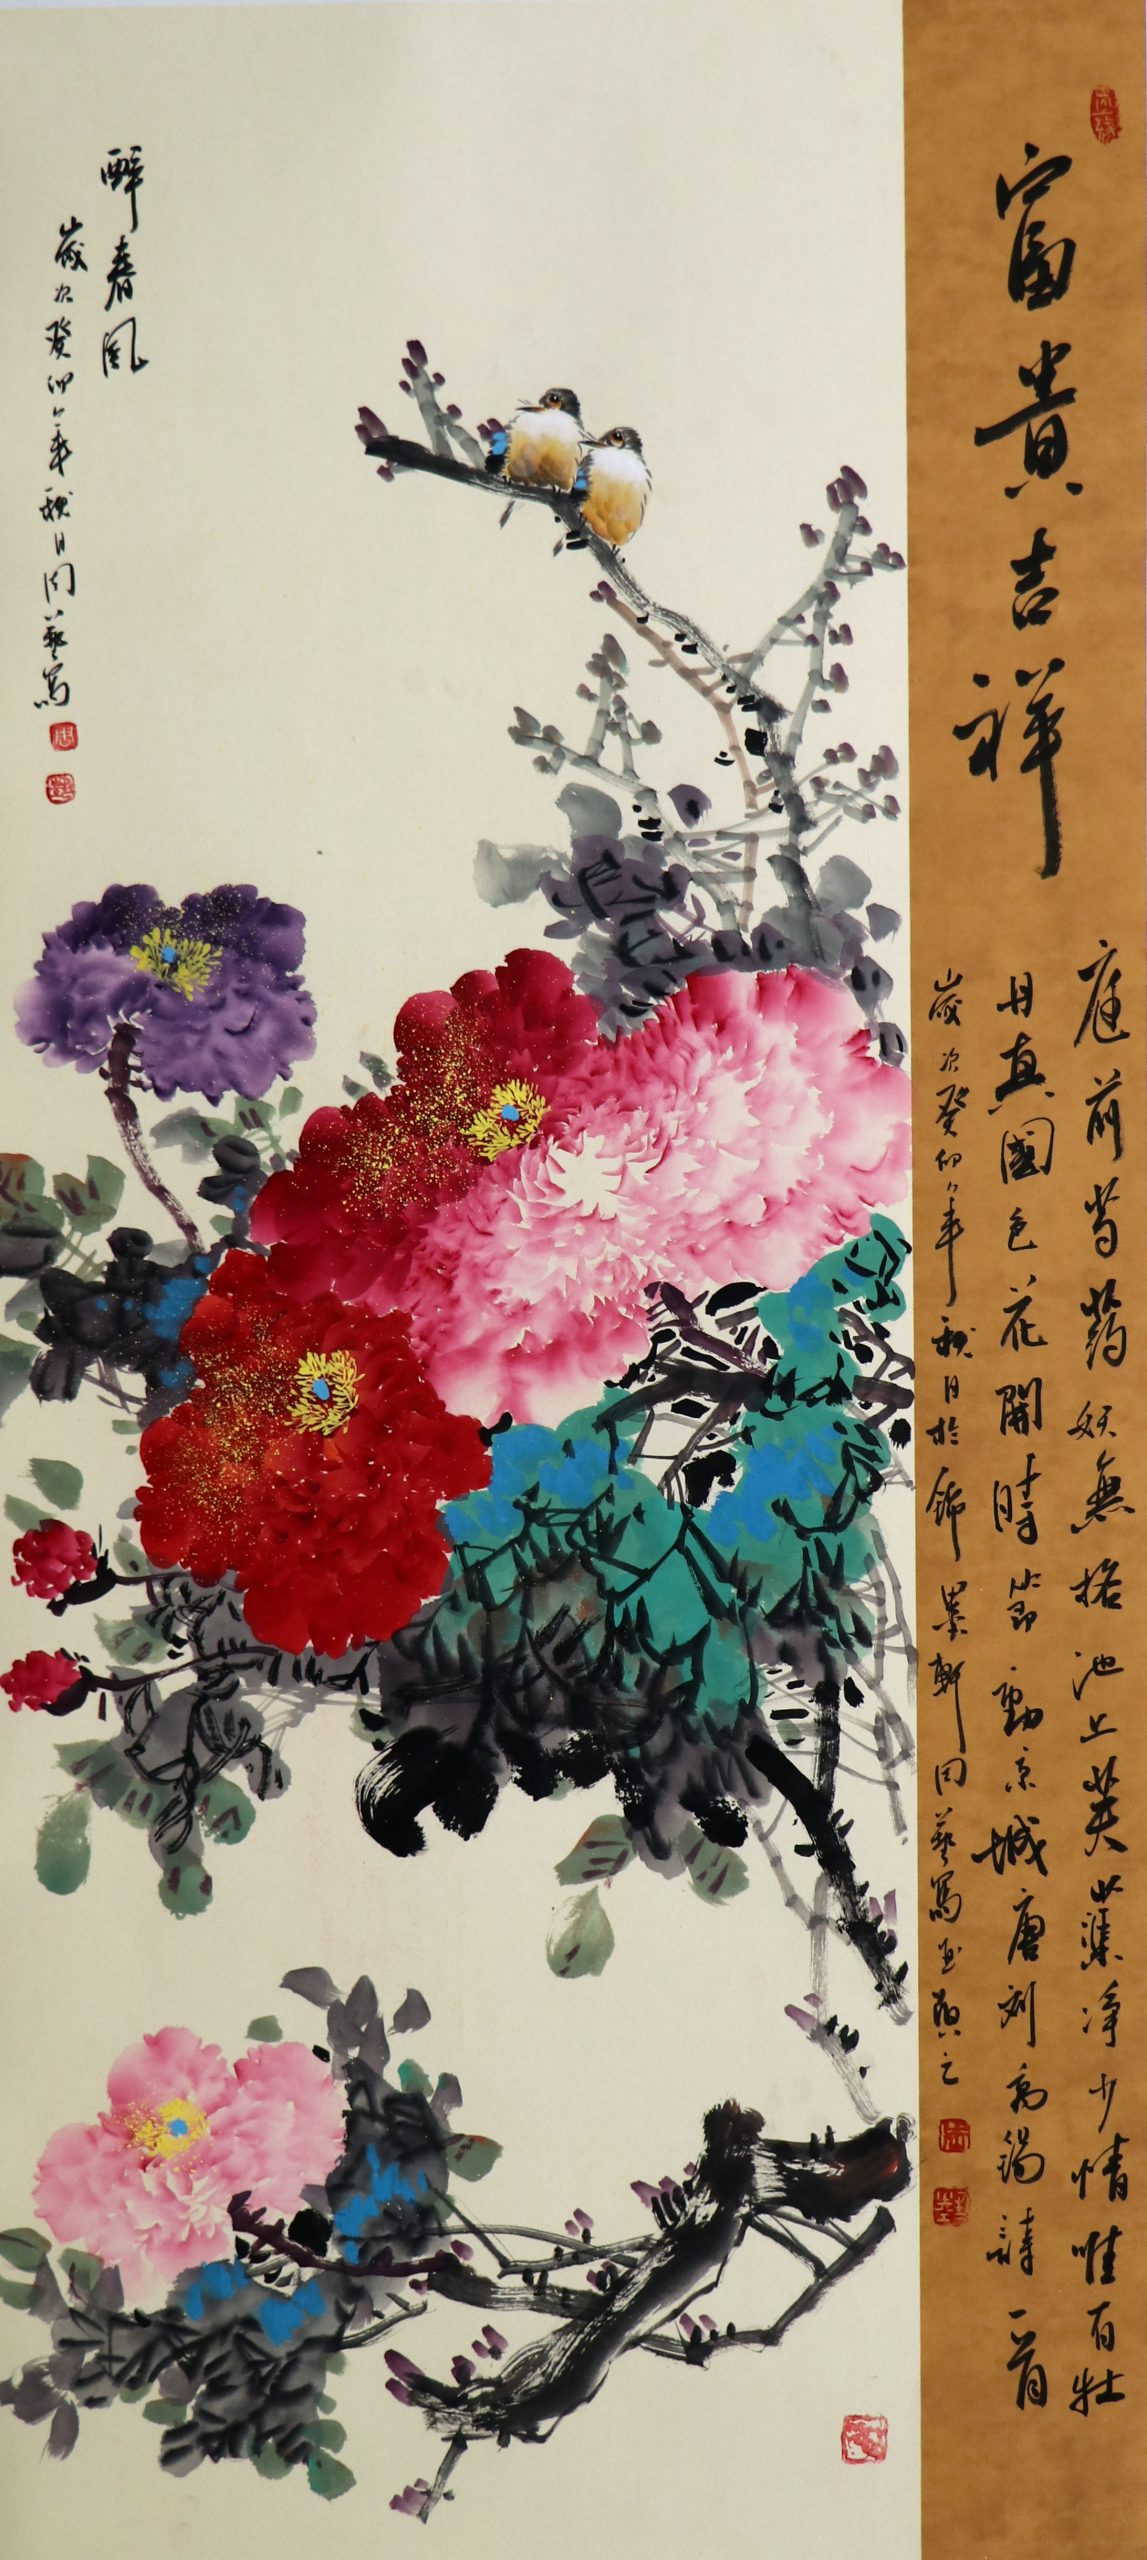 富貴吉祥
庭前芍药妖無格池上芙蕖净少情唯有牡
丹真國色花開時節動京城唐刘禹锡詩一首
歲次癸卯年秋月於錦墨軒周藝寫並題之
醉春風
歲次癸卯年秋月周藝寫